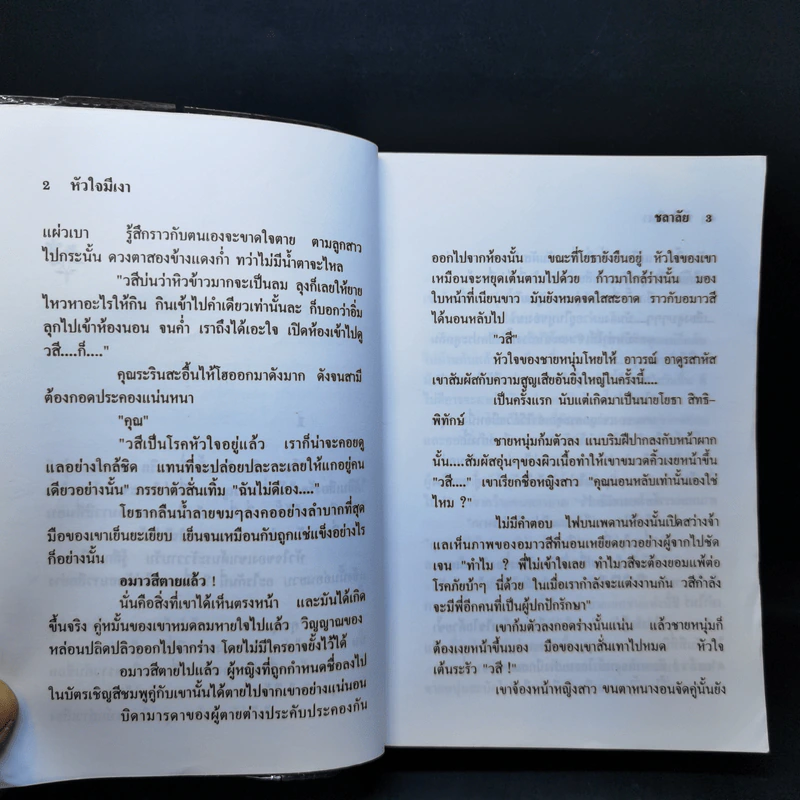 2 หัวใจมีเงา
แผ่วเบา รู้สึกราวกับตนเองจะขาดใจตาย ตามลูกสาว
ไปกระนั้น ดวงตาสองข้างแดงก่ำ ทว่าไม่มีน้ำตาจะไหล
"วสีบ่นว่าหิวข้าวมากจะเป็นลม ลุงก็เลยให้ยาย
ไหวหาอะไรให้กิน กินเข้าไปคำเดียวเท่านั้นละ ก็บอกว่าอิ่ม
ลุกไปเข้าห้องนอน จนค่ำ เราถึงได้เอะใจ เปิดห้องเข้าไปดู
วสี....ก็...."
คุณระรินสะอื้นไห้โฮออกมาดังมาก ดังจนสามี
ต้องกอดประคองแน่นหนา
"คุณ"
"วสีเป็นโรคหัวใจอยู่แล้ว เราก็น่าจะคอยดู
แลอย่างใกล้ชิด แทนที่จะปล่อยปละละเลยให้แกอยู่คน
เดียวอย่างนั้น" ภรรยาตัวสั่นเทิ้ม "ฉันไม่ดีเอง...."
โยธากลืนน้ำลายขมๆลงคออย่างลำบากที่สุด
มือของเขาเย็นยะเยียบ เย็นจนเหมือนกับถูกแช่แข็งอย่างไร
ก็อย่างนั้น
อมาวสีตายแล้ว !
นั่นคือสิ่งที่เขาได้เห็นตรงหน้า และมันได้เกิด
ขึ้นจริง คู่หมั้นของเขาหมดลมหายใจไปแล้ว วิญญาณของ
หล่อนปลิดปลิวออกไปจากร่าง โดยไม่มีใครอาจยั้งไว้ได้
อมาวสีตายไปแล้ว ผู้หญิงที่ถูกกำหนดชื่อลงไป
ในบัตรเชิญสีชมพูคู่กับเขานั้นได้ตายไปจากเขาอย่างแน่นอน
บิดามารดาของผู้ตายต่างประคับประคองกัน
ชลาลัย 3
ออกไปจากห้องนั้น ขณะที่โยธายังยืนอยู่ หัวใจของเขา
เหมือนจะหยุดเต้นตามไปด้วย ก้าวมาใกล้ร่างนั้น มอง
ใบหน้าที่เนียนขาว มันยังหมดจดใสสะอาด ราวกับอมาวสี
ได้นอนหลับไป
"วสี"
หัวใจของชายหนุ่มโหยไห้ อาวรณ์ อาดูรสาหัส
เขาสัมผัสกับความสูญเสียอันยิ่งใหญ่ในครั้งนี้....
เป็นครั้งแรก นับแต่เกิดมาเป็นนายโยธา สิทธิ-
พิทักษ์
ชายหนุ่มก้มตัวลง แนบริมฝีปากลงกับหน้าผาก
นั้น....สัมผัสอุ่นๆของผิวเนื้อทำให้เขาขมวดคิ้วเงยหน้าขึ้น
"วสี...." เขาเรียกชื่อหญิงสาว "คุณนอนหลับเท่านั้นเองใช่
ไหม ?"
ไม่มีคำตอบ ไฟบนเพดานห้องนั้นเปิดสว่างจ้า
แลเห็นภาพของอมาวสีที่นอนเหยียดยาวอย่างผู้จากไปชัด
เจน "ทำไม ? พี่ไม่เข้าใจเลย ทำไมวสีจะต้องยอมแพ้ต่อ
โรคภัยบ้าๆ นี่ด้วย ในเมื่อเรากำลังจะแต่งงานกัน วสีกำลัง
จะมีพี่อีกคนที่เป็นผู้ปกปักรักษา"
เขาก้มตัวลงกอดร่างนั้นแน่น แล้วชายหนุ่มก็
ต้องเงยหน้าขึ้นมอง มือของเขาสั่นเทาไปหมด หัวใจ
เต้นระรัว "วสี !"
เขาจ้องหน้าหญิงสาว ขนตาหนางอนจัดคู่นั้นยัง